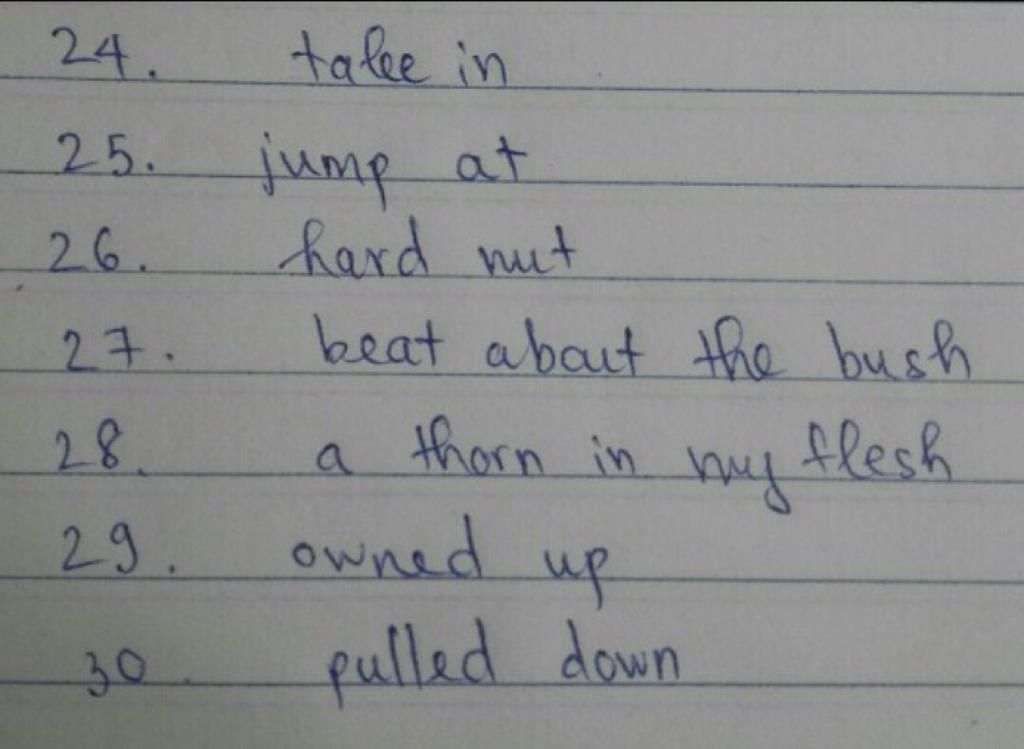 24. take in
25. jump at
26. hard nut
27. beat about the bush
28. a thorn in my flesh
29. owned up
30. pulled down